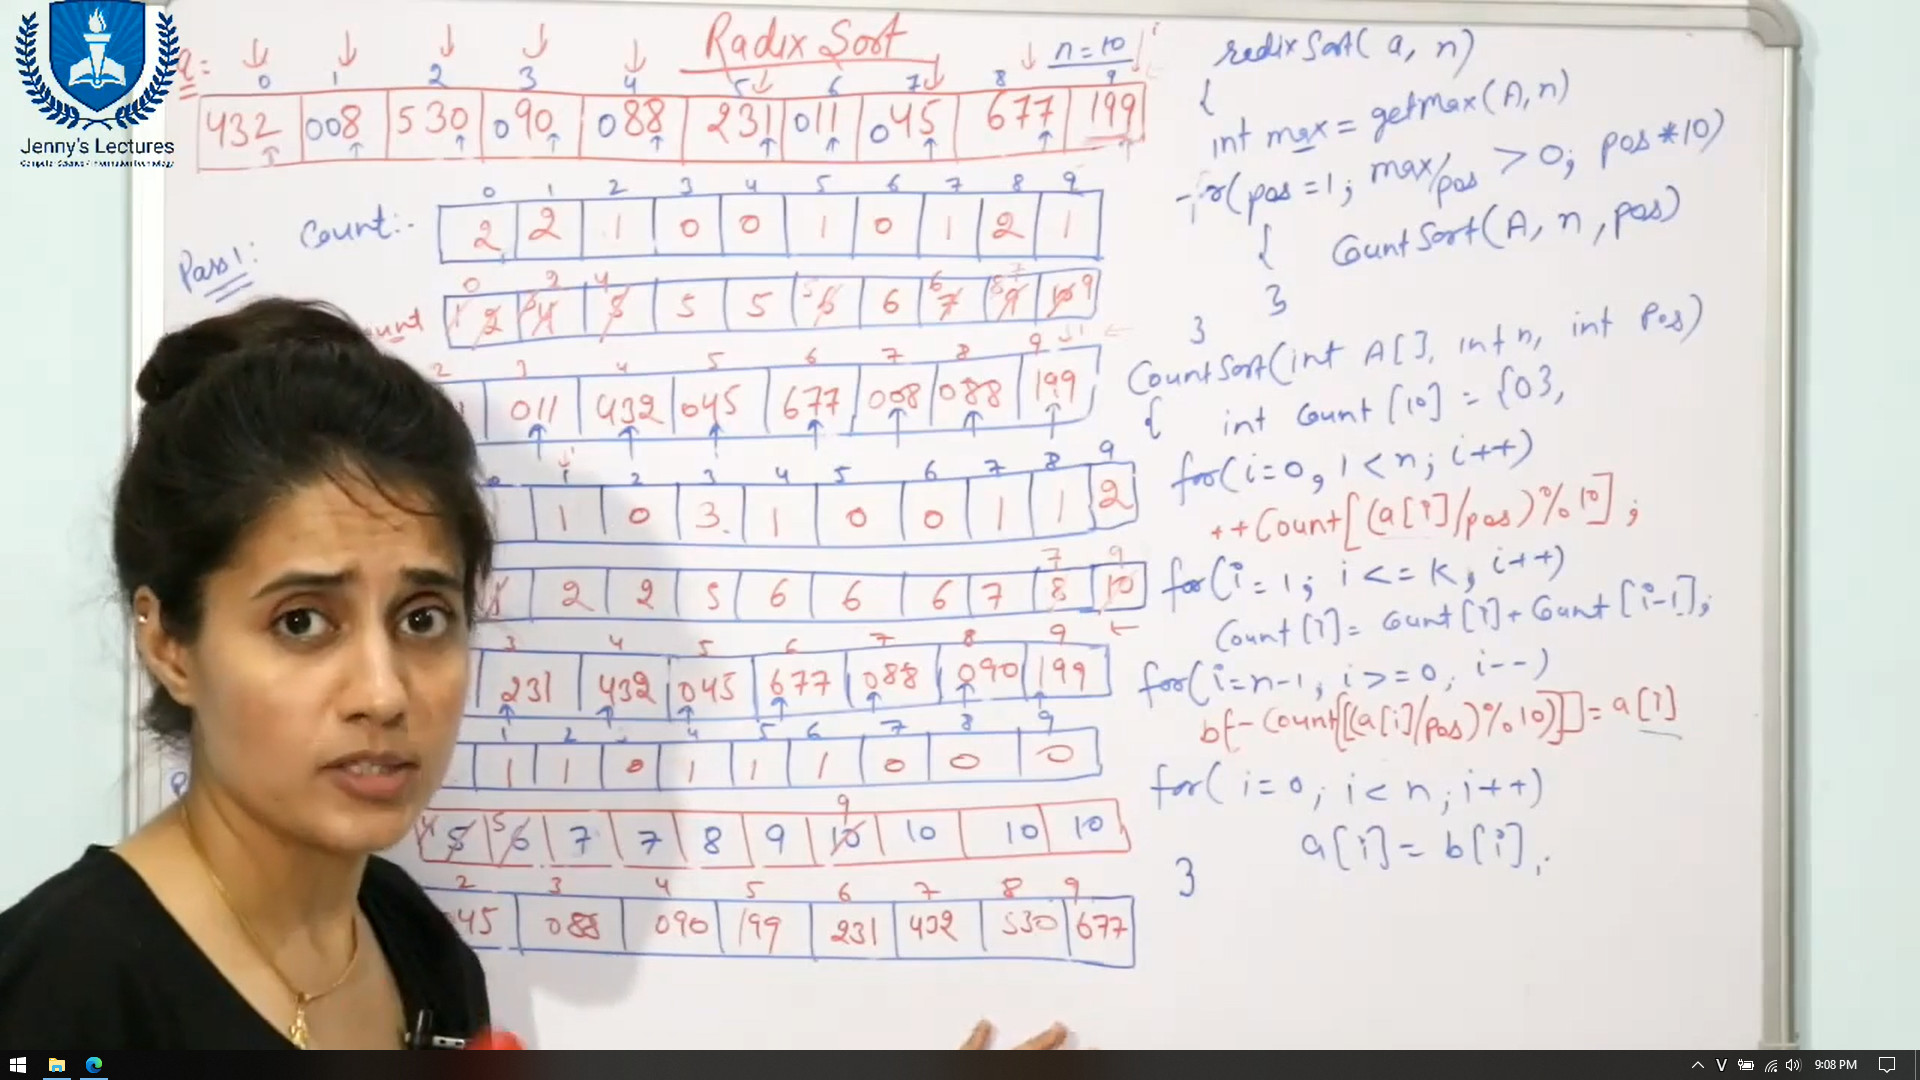 Jenny's Lectures
Computer Science / Information Technology
Radix Sort
n=10
a:
0 1 2 3 4 5 6 7 8 9
432 008 530 090 088 231 011 045 677 199
Pass1: Count:-
0 1 2 3 4 5 6 7 8 9
2 2 1 0 0 1 0 1 2 1
0 2 4 5 6 7 9
2 4 5 5 5 6 6 7 9 10
2 3 4 5 6 7 8 9
011 432 045 677 008 088 199
1 2 3 4 5 6 7 8 9
1 0 3 1 0 0 1 1 2
7 9
2 2 5 6 6 6 7 8 10
3 4 5 6 7 8 9
231 432 045 677 088 090 199
1 2 4 5 6 7 8 9
1 1 0 1 1 1 0 0 0
4 5 9
5 6 7 7 8 9 10 10 10 10
2 3 4 5 6 7 8 9
45 088 090 199 231 432 530 677
redixSort( a, n)
{
int max = getmax(A,n)
for(pos=1; max/pos > 0; pos*10)
{ CountSort(A, n, pos)
}
}
CountSort(int A[], int n, int Pos)
{ int Count [10] = {0},
for(i=0, i<n; i++)
++Count[(a[i]/pos)%10];
for(i=1; i<=K, i++)
Count[i]= Count[i]+Count[i-1];
for(i=n-1, i>=0, i--)
b[-Count[(a[i]/pos)%10)]]=a[i]
for( i=0; i<n; i++)
a[i]= b[i],
}
V
9:08 PM